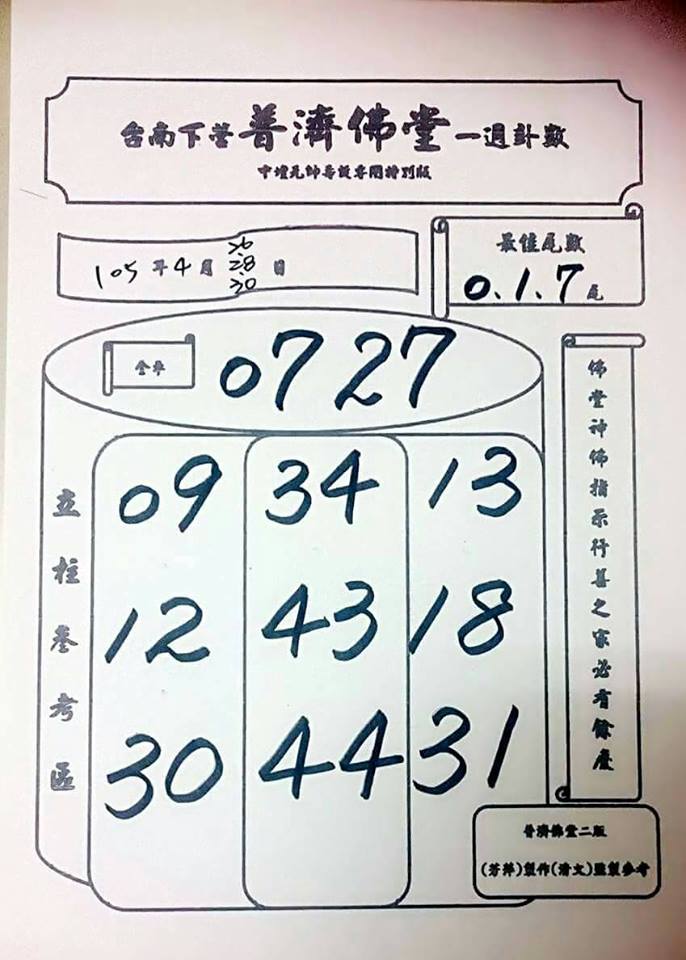 台南下營普濟佛堂一週計數
中壇元帥壽誕專開特別版
105年4月26.28.30日
最佳尾數
0.1.7尾
全車
07 27
立柱參考區
09 34 13
12 43 18
30 44 31
佛堂神佛指示行善之家必有餘慶
普濟佛堂二版
(芳萍)製作(清文)監製參考